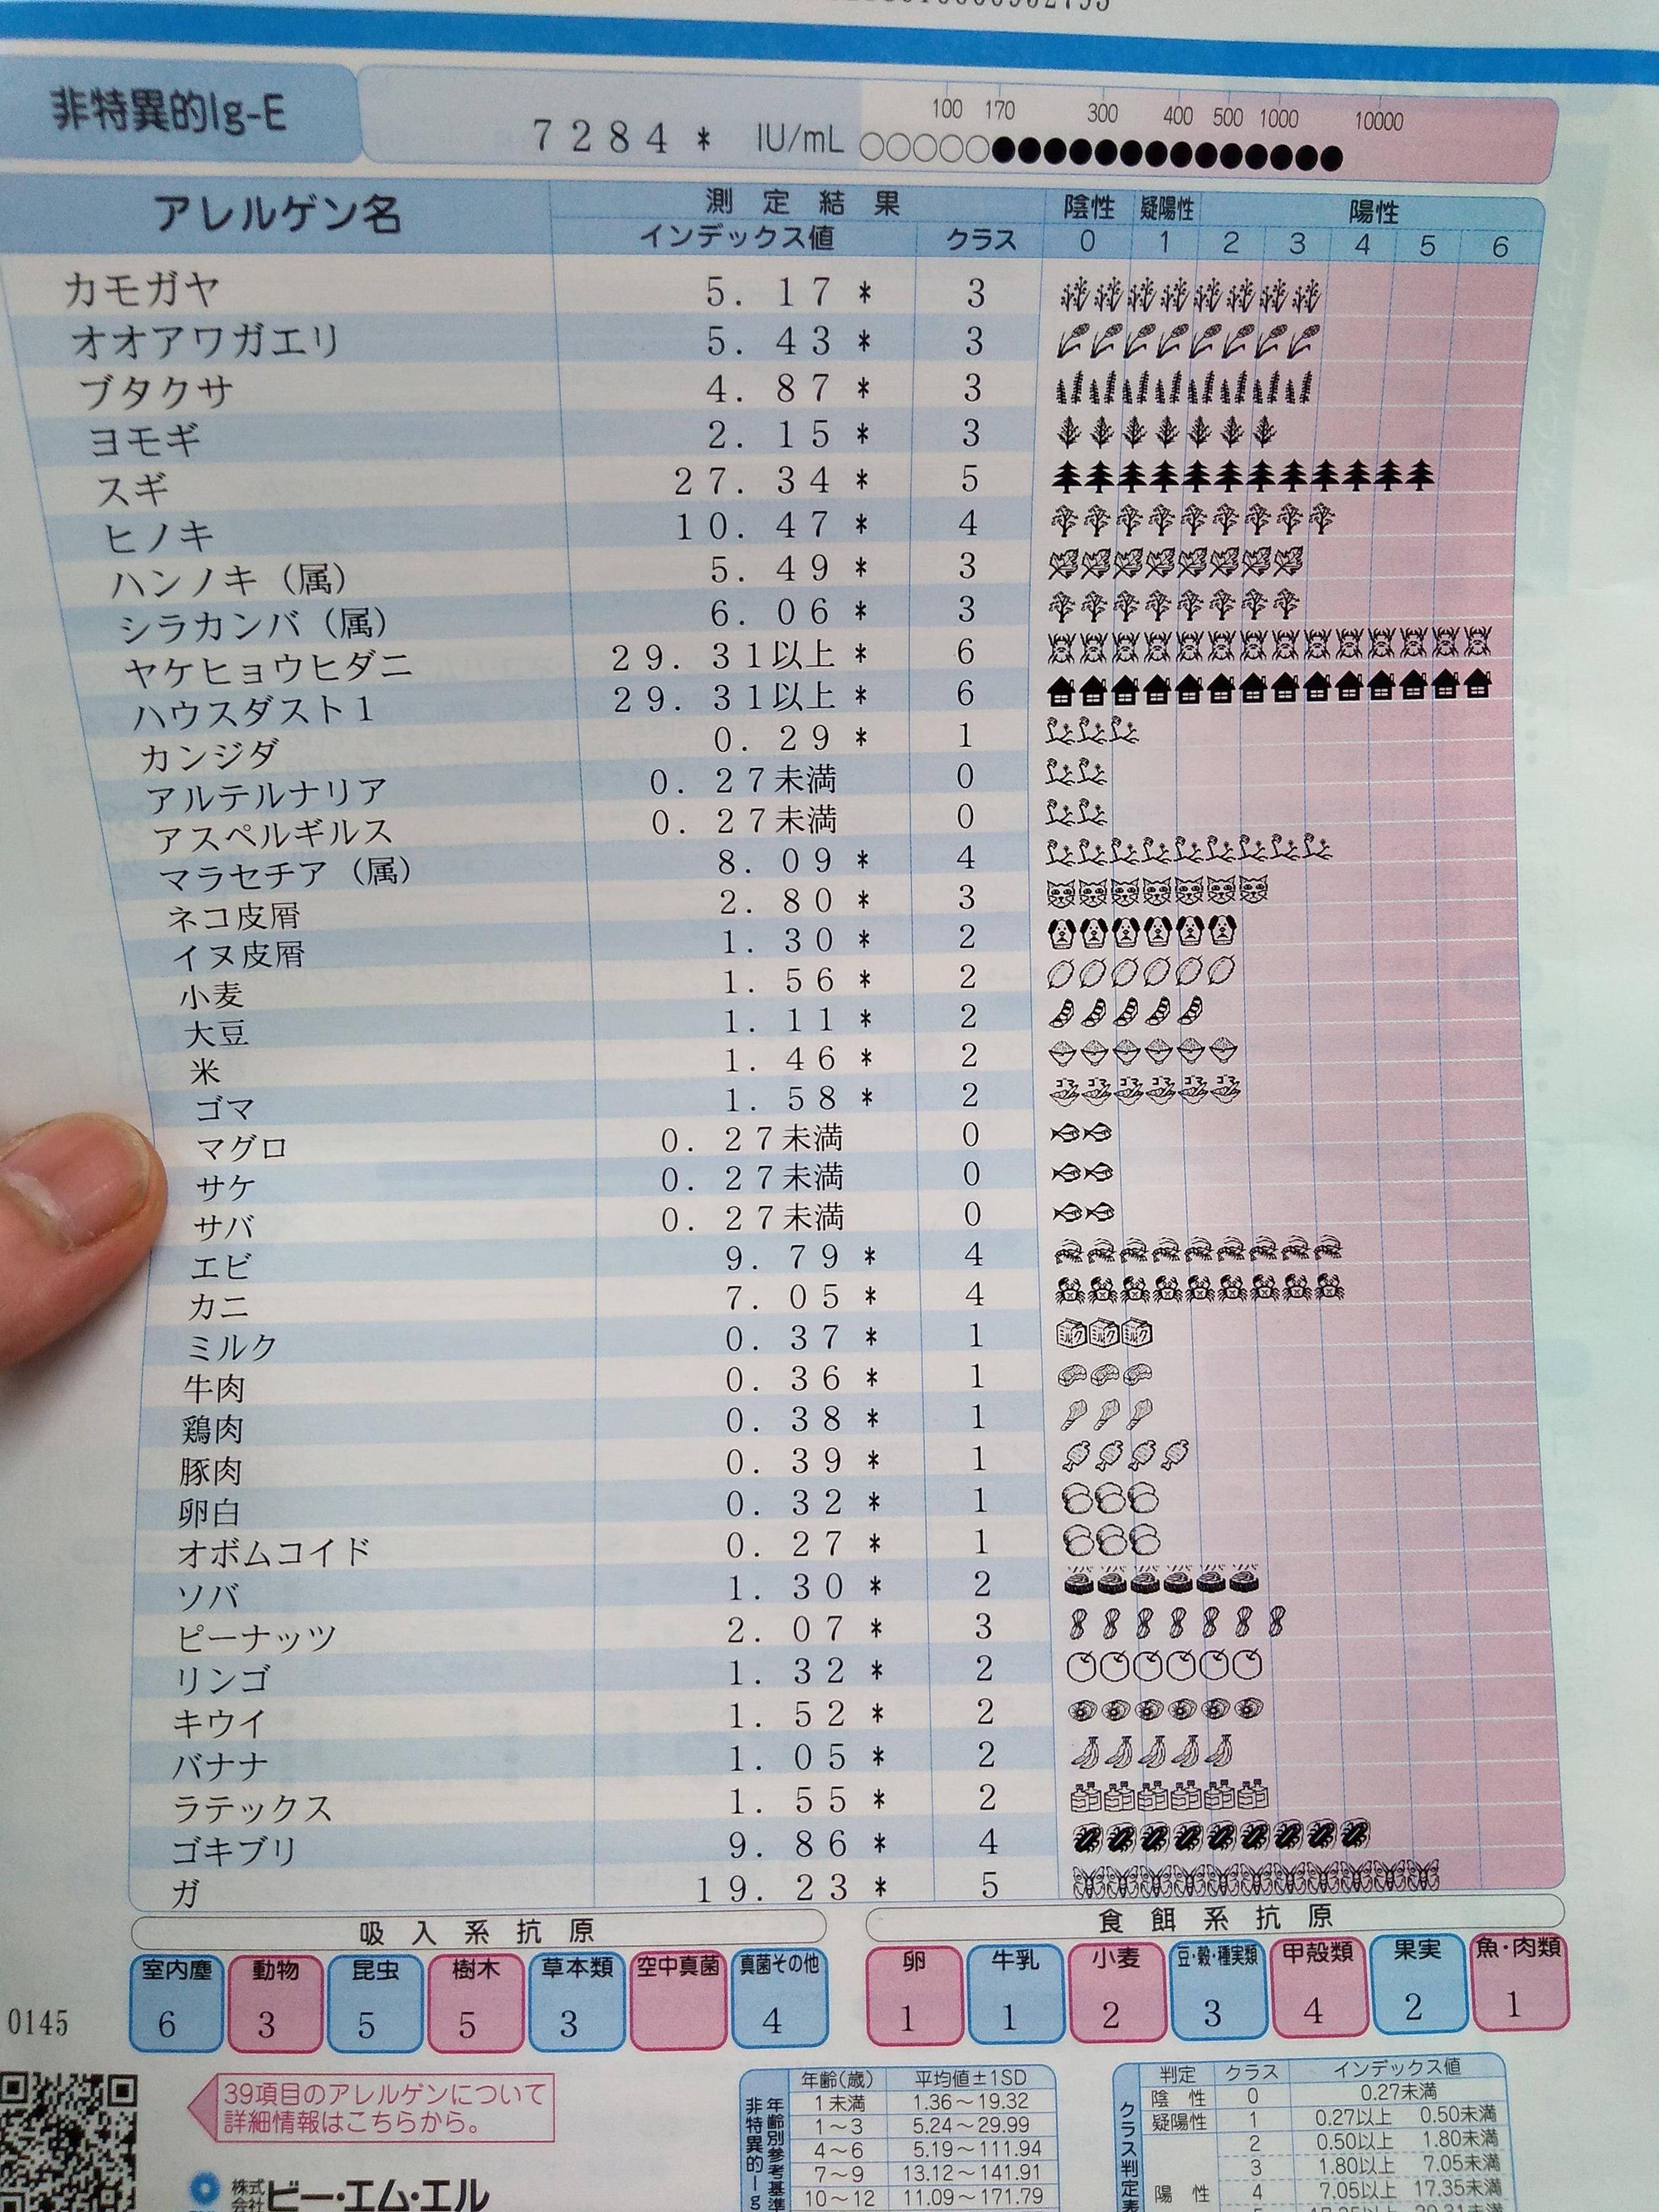 非特異的Ig-E 7284 * IU/mL 100 170 300 400 500 1000 10000
アレルゲン名 測定結果 陰性 疑陽性 陽性
インデックス値 クラス 0 1 2 3 4 5 6
カモガヤ 5.17 * 3
オオアワガエリ 5.43 * 3
ブタクサ 4.87 * 3
ヨモギ 2.15 * 3
スギ 27.34 * 5
ヒノキ 10.47 * 4
ハンノキ（属） 5.49 * 3
シラカンバ（属） 6.06 * 3
ヤケヒョウヒダニ 29.31以上 * 6
ハウスダスト1 29.31以上 * 6
カンジダ 0.29 * 1
アルテルナリア 0.27未満 0
アスペルギルス 0.27未満 0
マラセチア（属） 8.09 * 4
ネコ皮屑 2.80 * 3
イヌ皮屑 1.30 * 2
小麦 1.56 * 2
大豆 1.11 * 2
米 1.46 * 2
ゴマ 1.58 * 2
マグロ 0.27未満 0
サケ 0.27未満 0
サバ 0.27未満 0
エビ 9.79 * 4
カニ 7.05 * 4
ミルク 0.37 * 1
牛肉 0.36 * 1
鶏肉 0.38 * 1
豚肉 0.39 * 1
卵白 0.32 * 1
オボムコイド 0.27 * 1
ソバ 1.30 * 2
ピーナッツ 2.07 * 3
リンゴ 1.32 * 2
キウイ 1.52 * 2
バナナ 1.05 * 2
ラテックス 1.55 * 2
ゴキブリ 9.86 * 4
ガ 19.23 * 5
吸入系抗原 食餌系抗原
室内塵 動物 昆虫 樹木 草本類 空中真菌 真菌その他 卵 牛乳 小麦 豆・穀・種実類 甲殻類 果実 魚・肉類
6 3 5 5 3 4 1 1 2 3 4 2 1
0145
39項目のアレルゲンについて
詳細情報はこちらから。
株式会社ビー・エム・エル
年齢(歳) 平均値±1SD
1未満 1.36～19.32
1～3 5.24～29.99
4～6 5.19～111.94
7～9 13.12～141.91
10～12 11.09～171.79
年齢別参考基準
非特異的Ig
クラス判定表
判定 クラス インデックス値
陰性 0 0.27未満
疑陽性 1 0.27以上 0.50未満
陽性 2 0.50以上 1.80未満
3 1.80以上 7.05未満
4 7.05以上 17.35未満